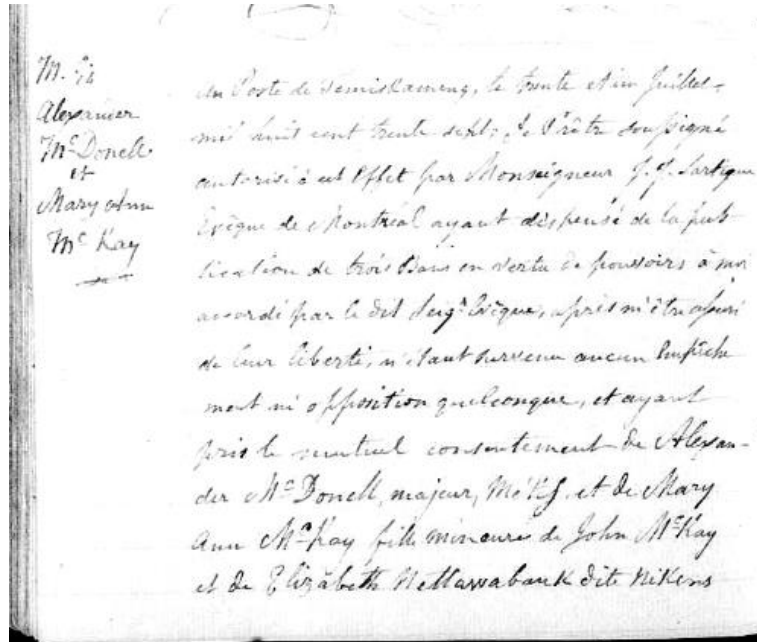 M. 
Alexander
McDonell
et
Mary Ann
McKay
Au Poste de Temiskameng, le trente et un Juillet
mil huit cent trente sept, Je Prêtre soussigné
autorisé à cet Effet par Monseigneur J. J. Lartigue
Evêque de Montréal ayant dispensé de la pub-
lication de trois Bans en vertu de pouvoirs à moi
accordé par le dit Seigr Evêque, après m'être assuré
de leur liberté, n'étant survenu aucun Empêche
ment ni opposition quelconque, et ayant
pris le mutuel consentement de Alexan-
der McDonell, majeur, Métif et de Mary
Ann McKay fille mineure de John McKay
et de Elizabeth Nettawabauk dite Nikens